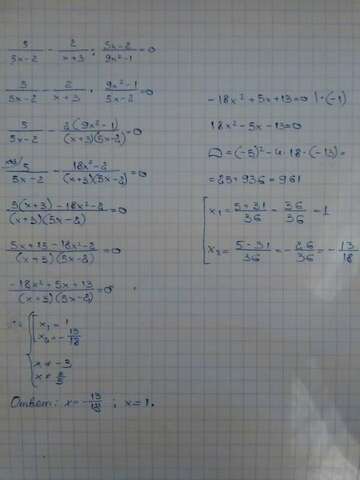 5/(5x-2) - 2/(x+3) : (5x-2)/(9x²-1) = 0
5/(5x-2) - 2/(x+3) · (9x²-1)/(5x-2) = 0
5/(5x-2) - 2(9x²-1)/((x+3)(5x-2)) = 0
5/(5x-2) - (18x²-2)/((x+3)(5x-2)) = 0
(5(x+3) - 18x²-2)/((x+3)(5x-2)) = 0
(5x+15-18x²-2)/((x+3)(5x-2)) = 0
(-18x²+5x+13)/((x+3)(5x-2)) = 0
x₁ = 1
x₂ = -13/18
x ≠ -3
x ≠ 2/5
Ответ: x = -13/18 ; x = 1.
-18x²+5x+13=0 | ·(-1)
18x²-5x-13=0
D = (-5)² - 4·18·(-13) =
= 25+936 = 961
x₁ = (5+31)/36 = 36/36 = 1
x₂ = (5-31)/36 = -26/36 = -13/18